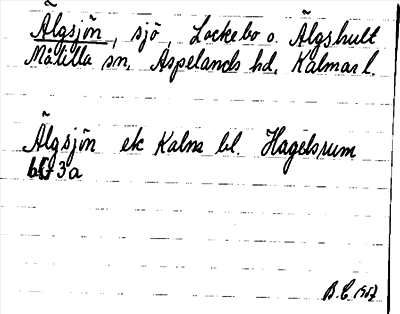 Älgsjön, sjö, Lockebo o. Älgshult
Målilla sn. Aspelands hd. Kalmar l.
Älgsjön ek Kalm bl. Hagelsrum
3a
B.C. 1957